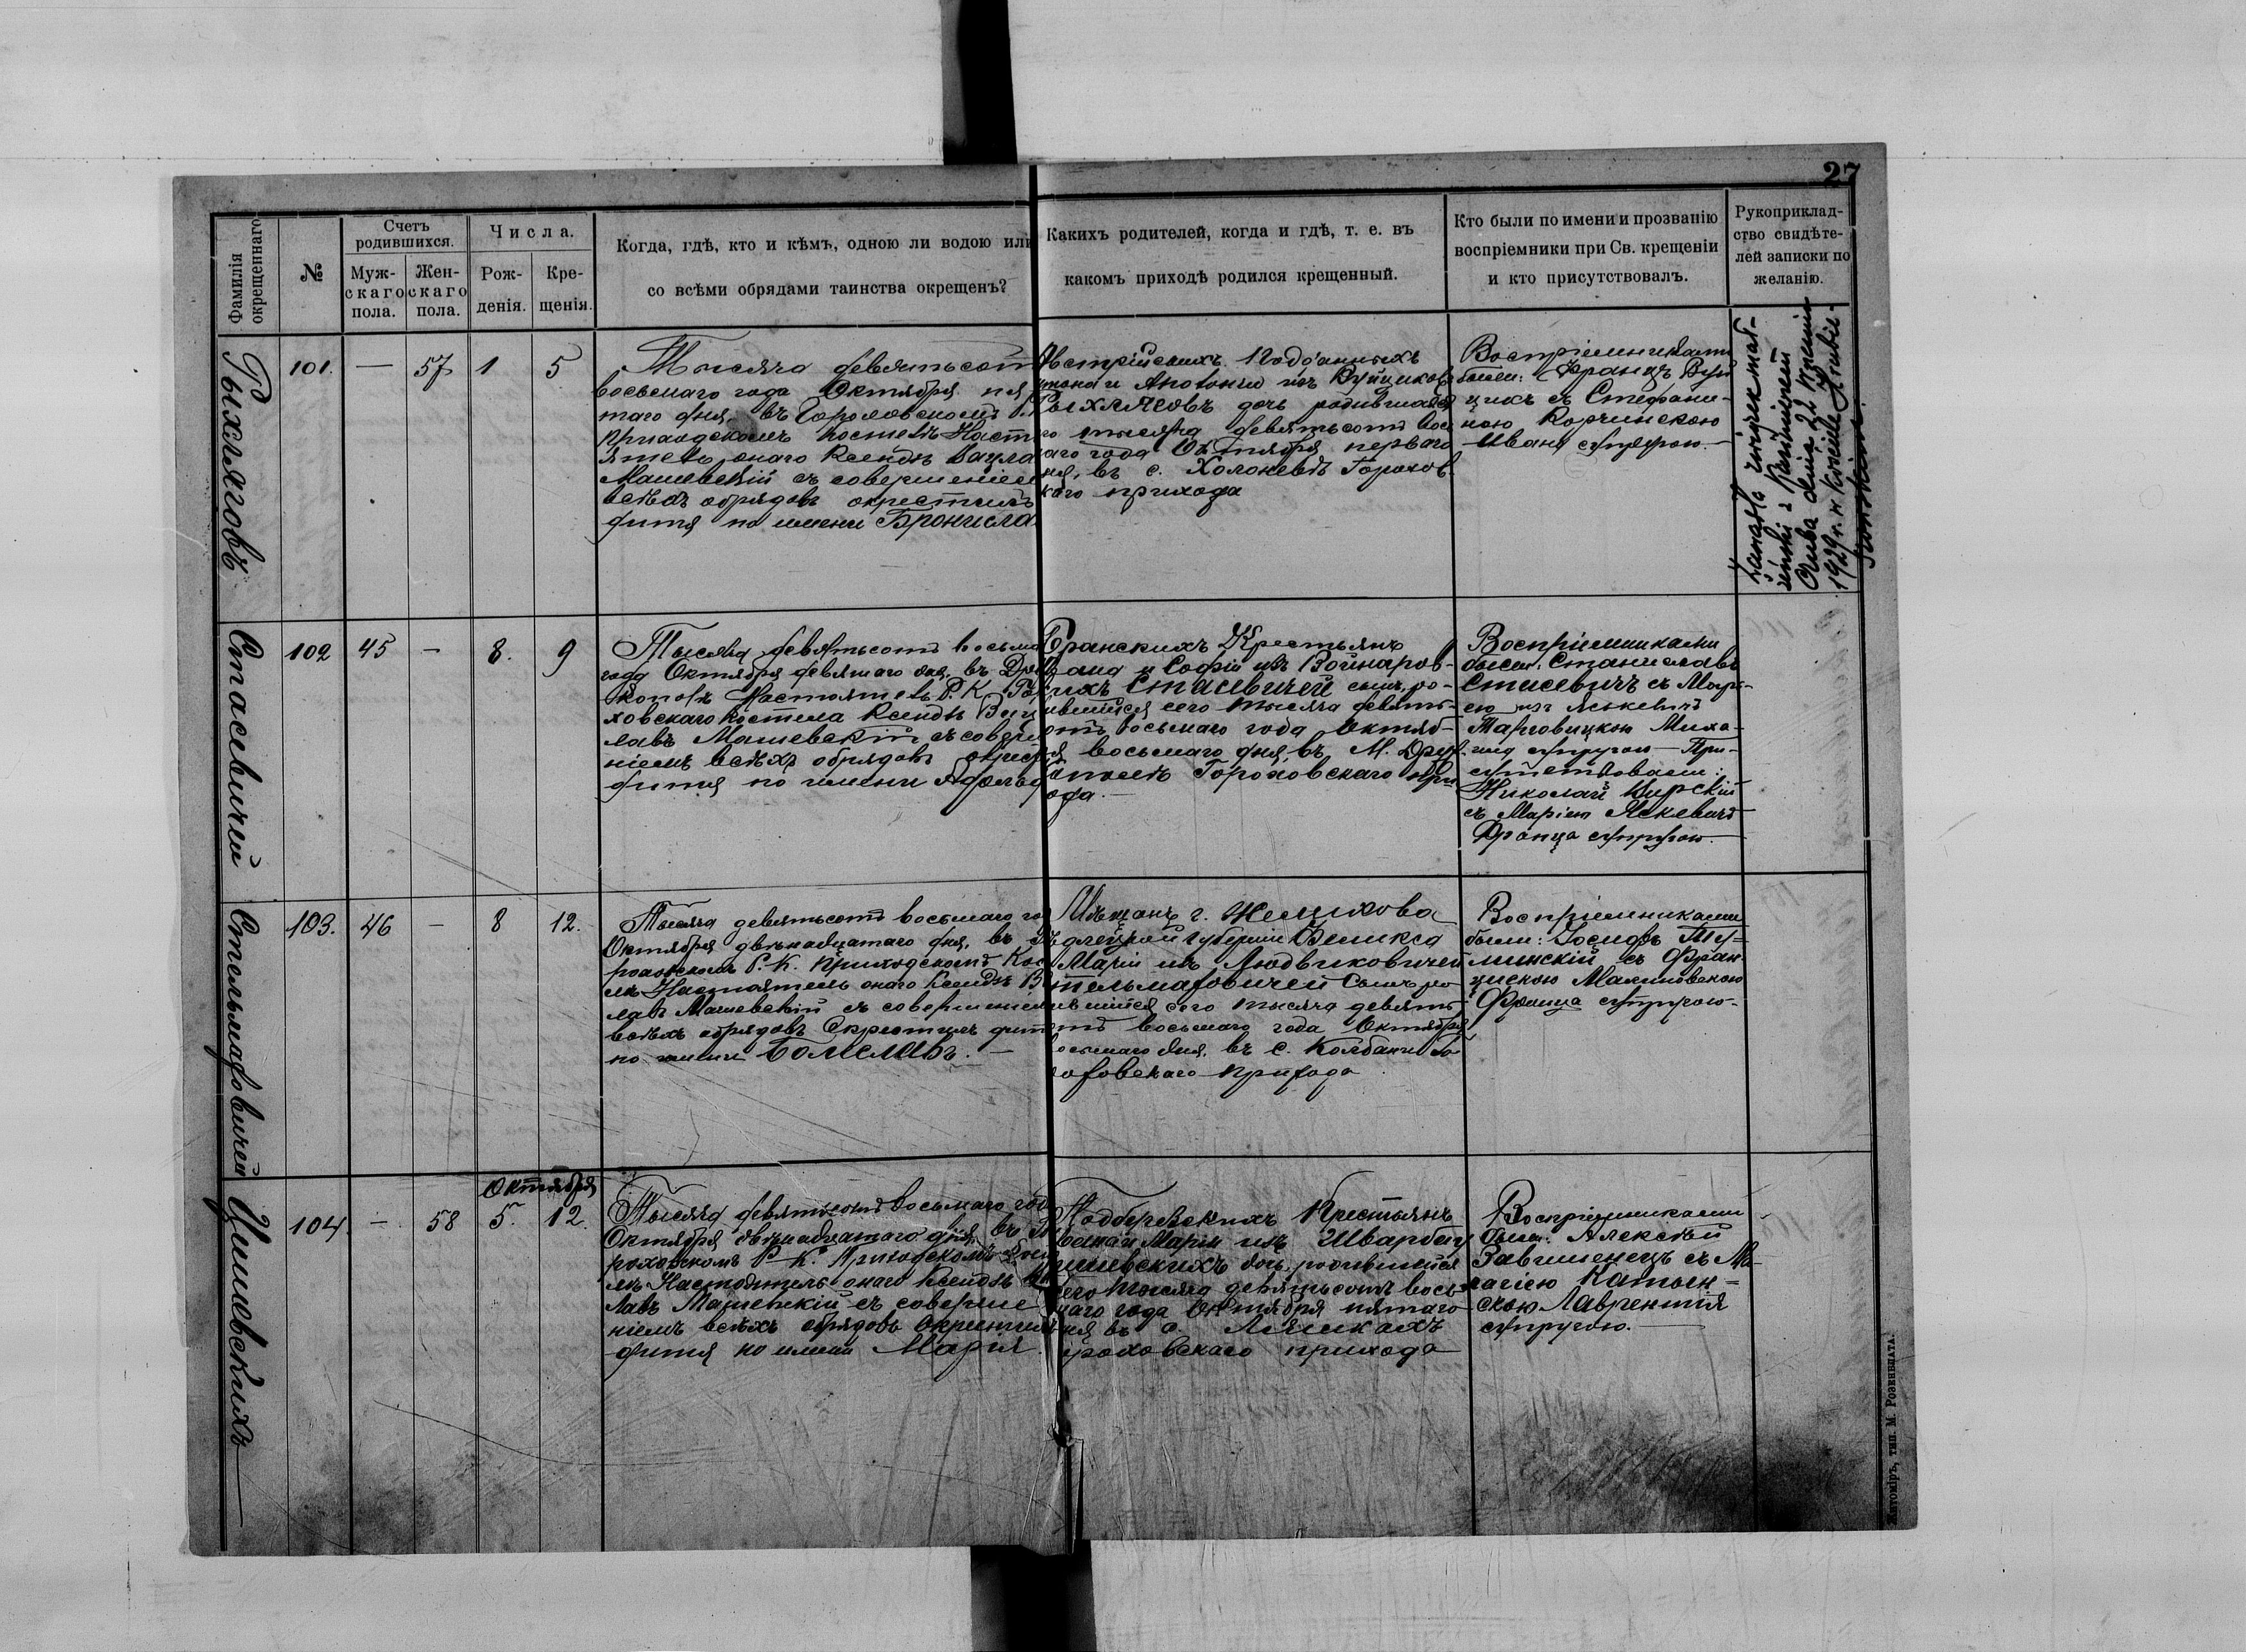 27
Фамилія окрещеннаго
№
Счетъ родившихся.
Муж-
скаго
пола.
Жен-
скаго
пола.
Числа.
Рож-
денія.
Кре-
щенія.
Когда, гдѣ, кто и кѣмъ, одною ли водою или
со всѣми обрядами таинства окрещенъ?
Какихъ родителей, когда и гдѣ, т. е. въ
какомъ приходѣ родился крещенный.
Кто были по имени и прозванію
воспріемники при Св. крещеніи
и кто присутствовалъ.
Рукоприклад-
ство свидѣте-
лей записки по
желанію.
101.
—
57
1
5
Тысяча девятьсот
восьмаго года Октября пя
таго дня, въ Гороховскомъ
приходскомъ костелѣ Наст
ятель онаго Ксендзъ Вацла
Машевскій съ совершеніем
всѣхъ обрядовъ окрестилъ
дитя по имени Бронисла
Австрійскихъ Подданныхъ
и Антоніи изъ Вуйциков
дочь родившаяся
тысяча девятьсотъ вос
аго года Октября перваго
ня, въ с. Холоневѣ Горохов
каго прихода
Воспріемниками
были: Францъ Вуй
цикъ съ Стефани-
ною Корчинскою
Ивана супругою.
Zawarła związek mał-
żeński z Kazimierzem
dnia 22
1929 r. w kościele
102
45
—
8.
9
Стасевичей
Тысяча девятьсотъ восьма
года Октября девятаго дня, въ Дру
кополѣ Настоятель Р. К. Го
ховскаго костела Ксендзъ Вац
лавъ Машевскій съ соверше
ніемъ всѣхъ обрядовъ окрест
дитя по имени Адольф
Крестьянъ
и Софіи изъ Войнаров-
Стасевичей сынъ, ро-
ившійся сего тысяча девять-
отъ восьмаго года Октяб-
я восьмаго дня, въ М. Дру
полѣ Гороховскаго при
ода.
Воспріемниками
были: Станиславъ
Стасевичъ съ Марі-
ею изъ Яскевичъ
Тарговицкою Миха-
ила супругою — При-
сутствовали:
Николай
съ Маріею Яскевичъ
Франца супругою.
103.
46
—
8
12.
Стельмаховичей
Тысяча девятьсотъ восьмаго го
Октября двѣнадцатаго дня, въ Го
роховскомъ Р. К. Приходскомъ Кос
лѣ Настоятель онаго Ксендзъ В
лавъ Машевскій съ совершеніем
всѣхъ обрядовъ Окрестилъ дит
по имени Болеславъ. —
Мѣщанъ г.
губерніи Феликса
Маріи изъ Людвиковичей
тельмаховичей Сынъ ро
ившійся сего тысяча девять
отъ восьмаго года Октября
осьмаго дня, въ с. Колбани Го
оховскаго прихода
Воспріемниками
были: Іосифъ
съ Фран
цискою Малиновскою
Франца супругою.
104
—
58
Октября
5.
12.
Цишевскихъ
Тысяча девятьсотъ восьмаго год
Октября двѣнадцатаго дня, въ Го
роховскомъ Р. К. Приходскомъ
лѣ Настоятель онаго Ксендзъ
лавъ Машевскій съ соверше
ніемъ всѣхъ обрядовъ Окрестилъ
дитя по имени Марія.
Подберезскихъ Крестьянъ
Маріи изъ
ишевскихъ дочь, родившейся
сего тысяча девятьсотъ вось
маго года Октября пятаго
ня въ с. Ляшкахъ
ороховскаго прихода
Воспріемниками
были: Алексѣй
съ Ма-
Лаврентія
супругою.
Житоміръ, тип. М. Розенблата.